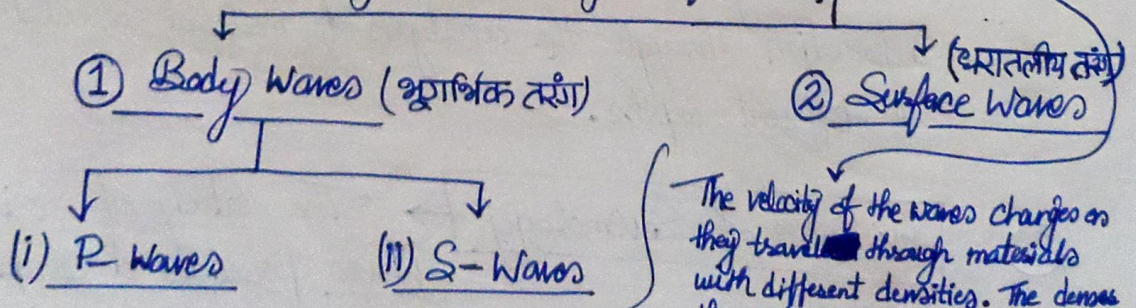 ① Body Waves (भूगर्भिक तरंग)
② Surface Waves (धरातलीय तरंग)
(i) P-Waves
(II) S-Waves
The velocity of the waves changes as
they travel through materials
with different densities. The denser